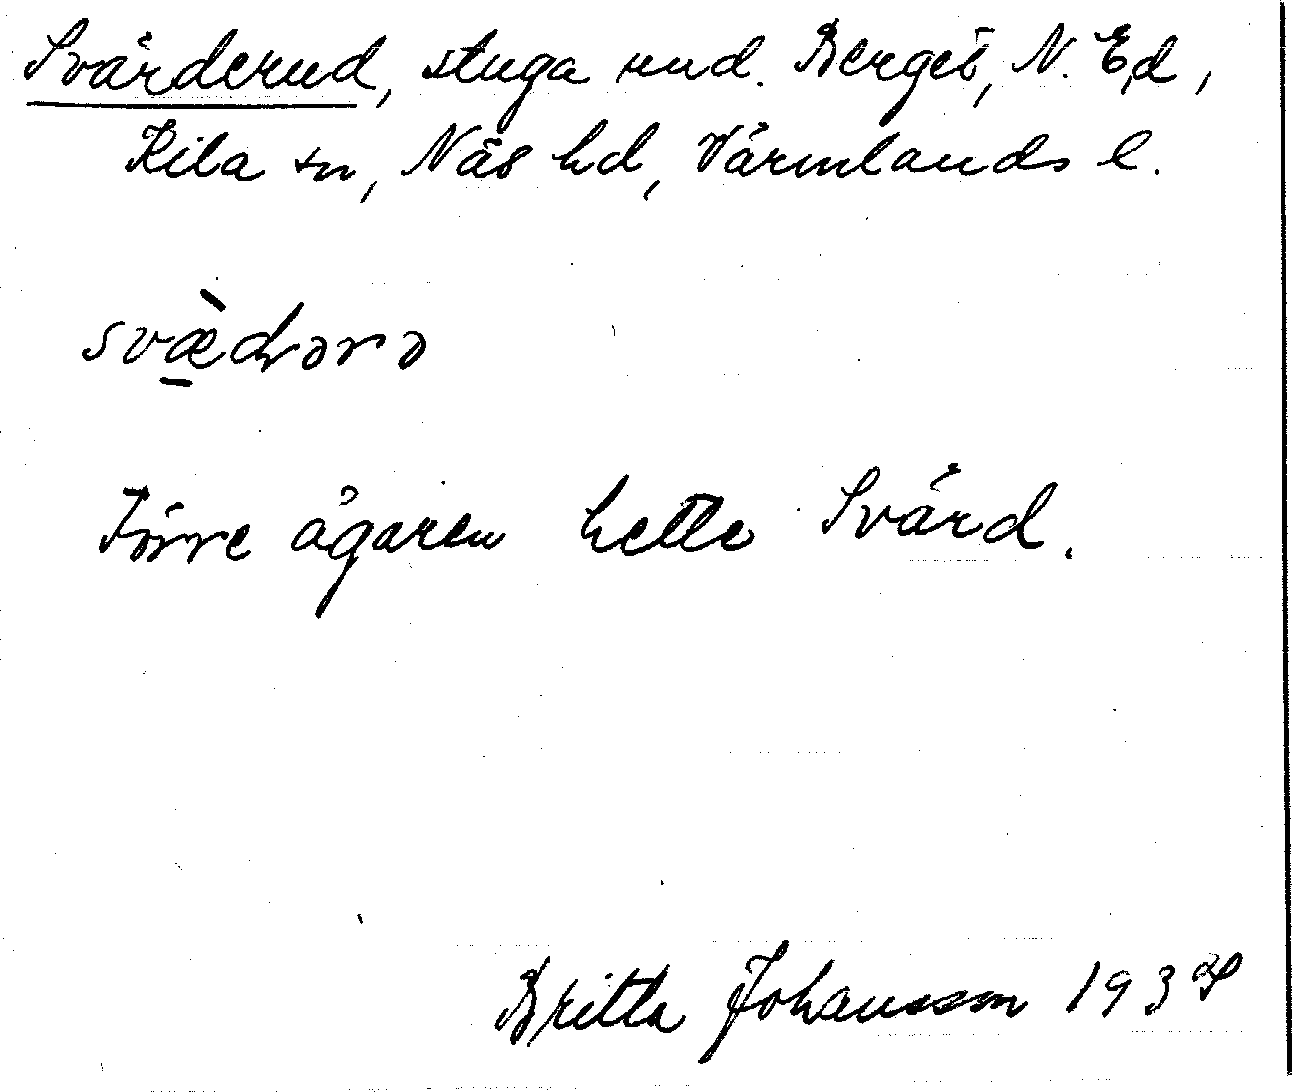 Svärderud, stuga und. Berget, N. Ed,
Kila sn, Näs hd, Värmlands l.
svæ̀dərə
Förre ägaren hette Svärd.
Britta Johansson